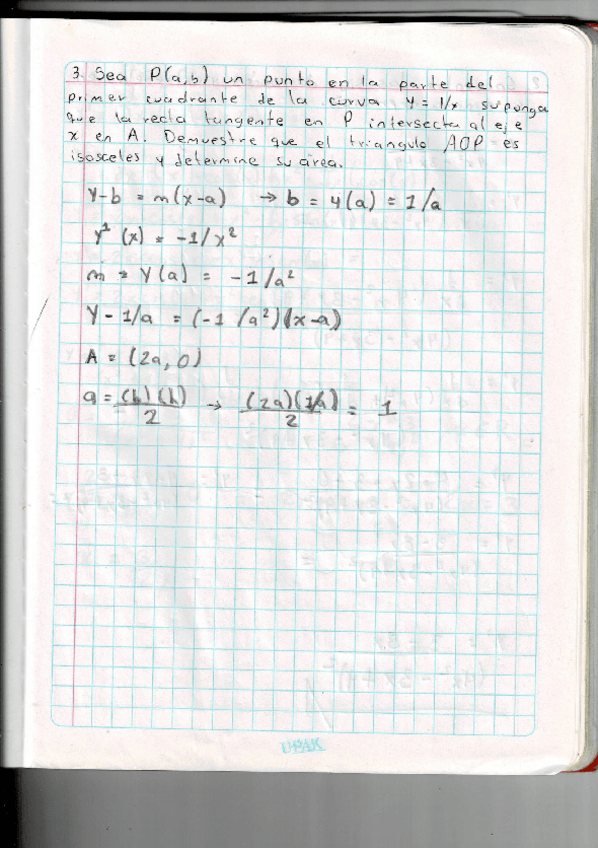 3. Sea P(a,b) un punto en la parte del
primer cuadrante de la curva y = 1/x supunga
que la recta tangente en P intersecta al eje
x en A. Demuestre que el triangulo AOP es
isosceles y determine su area.
y-b = m(x-a) → b = y(a) = 1/a
y¹(x) = -1/x²
m = y(a) = -1/a²
y - 1/a = (-1/a²)(x-a)
A = (2a, 0)
a = (b)(h)/2 → (2a)(1/a)/2 = 1
UPAK